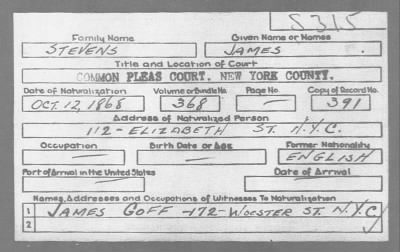 S315
Family Name Given Name or Names
STEVENS JAMES
Title and Location of Court
COMMON PLEAS COURT. NEW YORK COUNTY.
Date of Naturalization Volume or Bundle No. Page No. Copy of Record No.
OCT. 12, 1868 368 — 391
Address of Naturalized Person
112 - ELIZABETH ST. N.Y.C.
Occupation Birth Date or Age Former Nationality
— — ENGLISH
Port of Arrival in the United States Date of Arrival
— —
Names, Addresses and Occupations of Witnesses To Naturalization
1 JAMES GOFF - 172 - WOOSTER ST. N.Y.C.
2